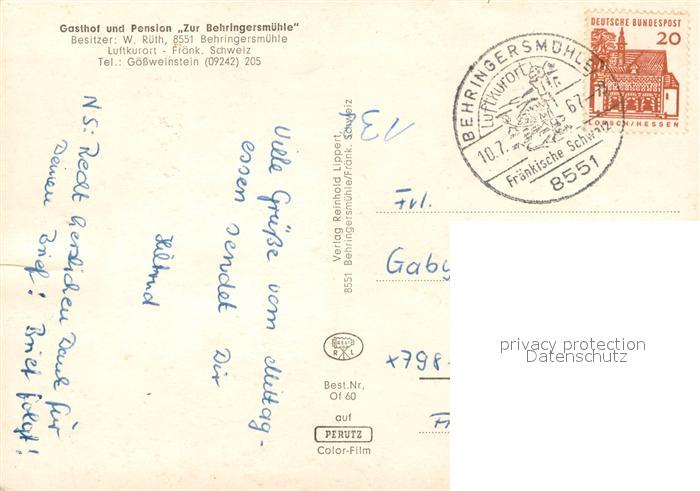 Gasthof und Pension „Zur Behringersmühle"
Besitzer: W. Rüth, 8551 Behringersmühle
Luftkurort - Fränk. Schweiz
Tel.: Gößweinstein (09242) 205
Viele Grüße vom Mittag-
essen sendet Dir
NS: Recht herzlichen Dank für
Deinen Brief! Brief folgt!
Verlag Reinhold Lippert,
8551 Behringersmühle/Fränk. Schweiz
R L
Best.Nr.
Of 60
auf
PERUTZ
Color-Film
BEHRINGERSMÜHLE
LUFTKURORT
10.7. 67
Fränkische Schweiz
8551
DEUTSCHE BUNDESPOST
20
LORSCH/HESSEN
13
Frl.
Gaby
x798
privacy protection
Datenschutz